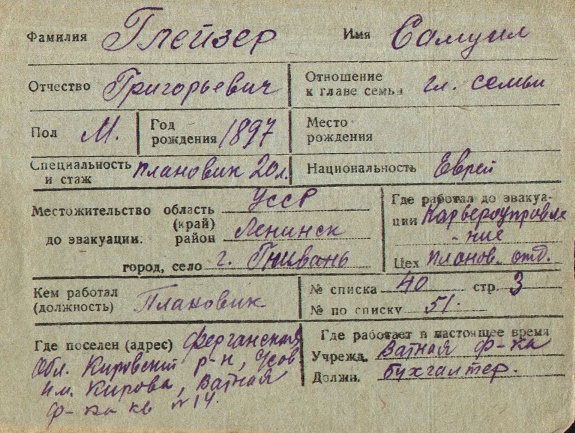 Фамилия Глейзер Имя Самуил
Отчество Григорьевич Отношение к главе семьи гл. семьи
Пол М. Год рождения 1897 Место рождения
Специальность и стаж плановик 20 л. Национальность Еврей
Местожительство до эвакуации. область (край) УССР
район Ленинск
город, село г. Гнивань
Где работал до эвакуации Карьероуправле-
-ние
Цех планов. отд.
Кем работал (должность) Плановик
№ списка 40 стр. 3
№ по списку 51.
Где поселен (адрес) Ферганская
Обл. Кировский р-н,
им. Кирова, Ватная
ф-ка кв №14.
Где работает в настоящее время
Учрежд. Ватная ф-ка
Должн. бухгалтер.